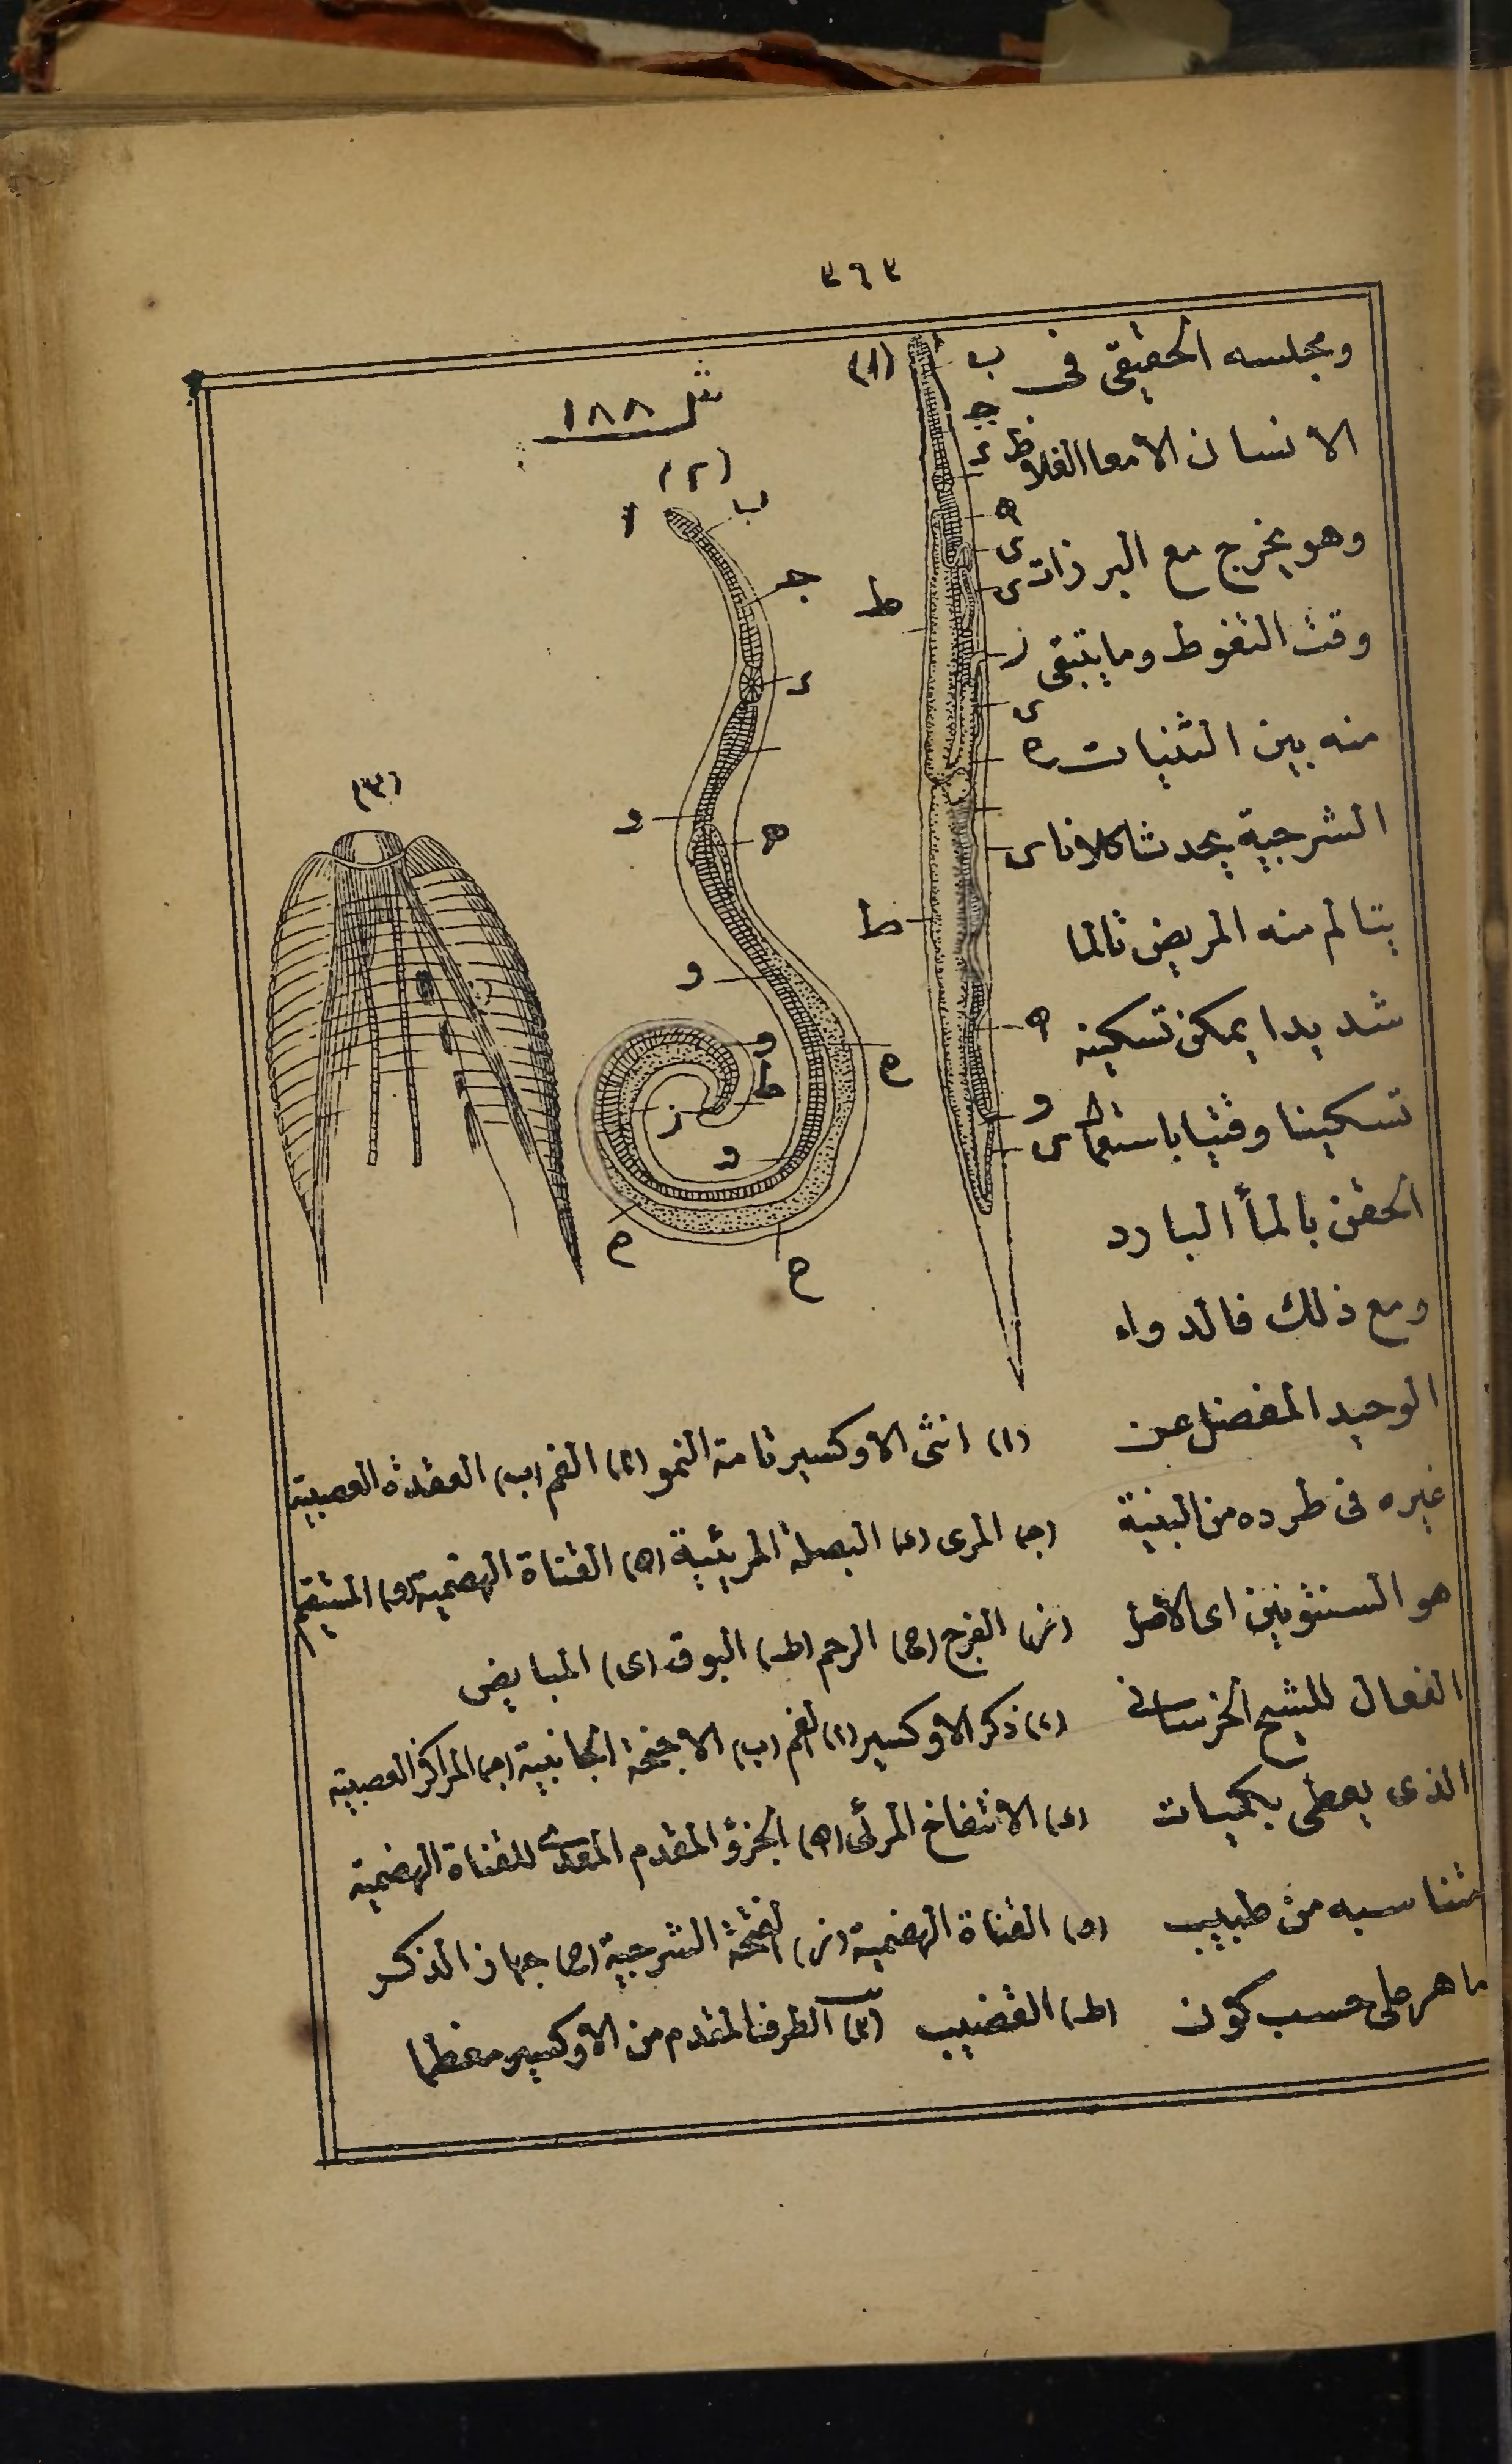 ٣٦٣
ومجلسه الحقيقى فى
الانسان الامعا الغلاظ
وهو يخرج مع البرازات
وقت التغوط وما يتبقى
منه بين الثنيات
الشرجية يحدث اكلانا
يتالم منه المريض تالما
شديدا يمكن تسكينه
تسكينا وقتيا باستعمال
الحقن بالمأ البارد
ومع ذلك فالدواء
الوحيد المفضل عن
غيره فى طرده من البنية
هو السنتونين اى الاصل
الفعال للشيح الخرسانى
الذى يعطى بكميات
متناسبه من طبيب
ماهر على حسب كون
شكل ١٨٨
(١)
ا
ب
ج
د
ه
ى
ى
ز
ى
ح
ى
ه
و
ى
ط
ط
(٢)
ا
ب
ج
د
و
ه
و
و
ط
ز
و
ح
ح
ح
(٣)
(١) انثى الاوكسير تامة النمو (ا) الفم (ب) العقدة العصبية
(ج) المرى (د) البصلة المريئية (ه) القناة الهضمية (و) المستقيم
(ز) الفرج (ح) الرحم (ط) البوق (ى) المبايض
(٢) ذكر الاوكسير (ا) الفم (ب) الاجنحة الجانبية (ج) المراكز العصبية
(د) الانتفاخ المرئى (ه) الجزؤ المقدم المعدى للقناة الهضمية
(و) القناة الهضمية (ز) الفتحة الشرجية (ح) جهاز الذكر
(ط) القضيب (٣) الطرف المقدم من الاوكسير معظما